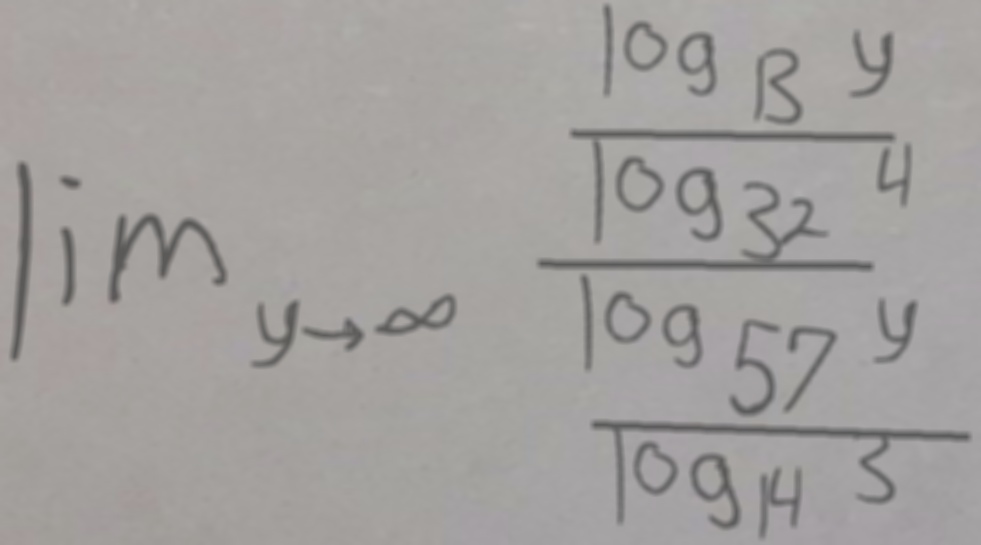 \lim_{y \to \infty} \frac{\frac{\log_{B} y}{\log_{32} 4}}{\frac{\log_{57} y}{\log_{14} 3}}